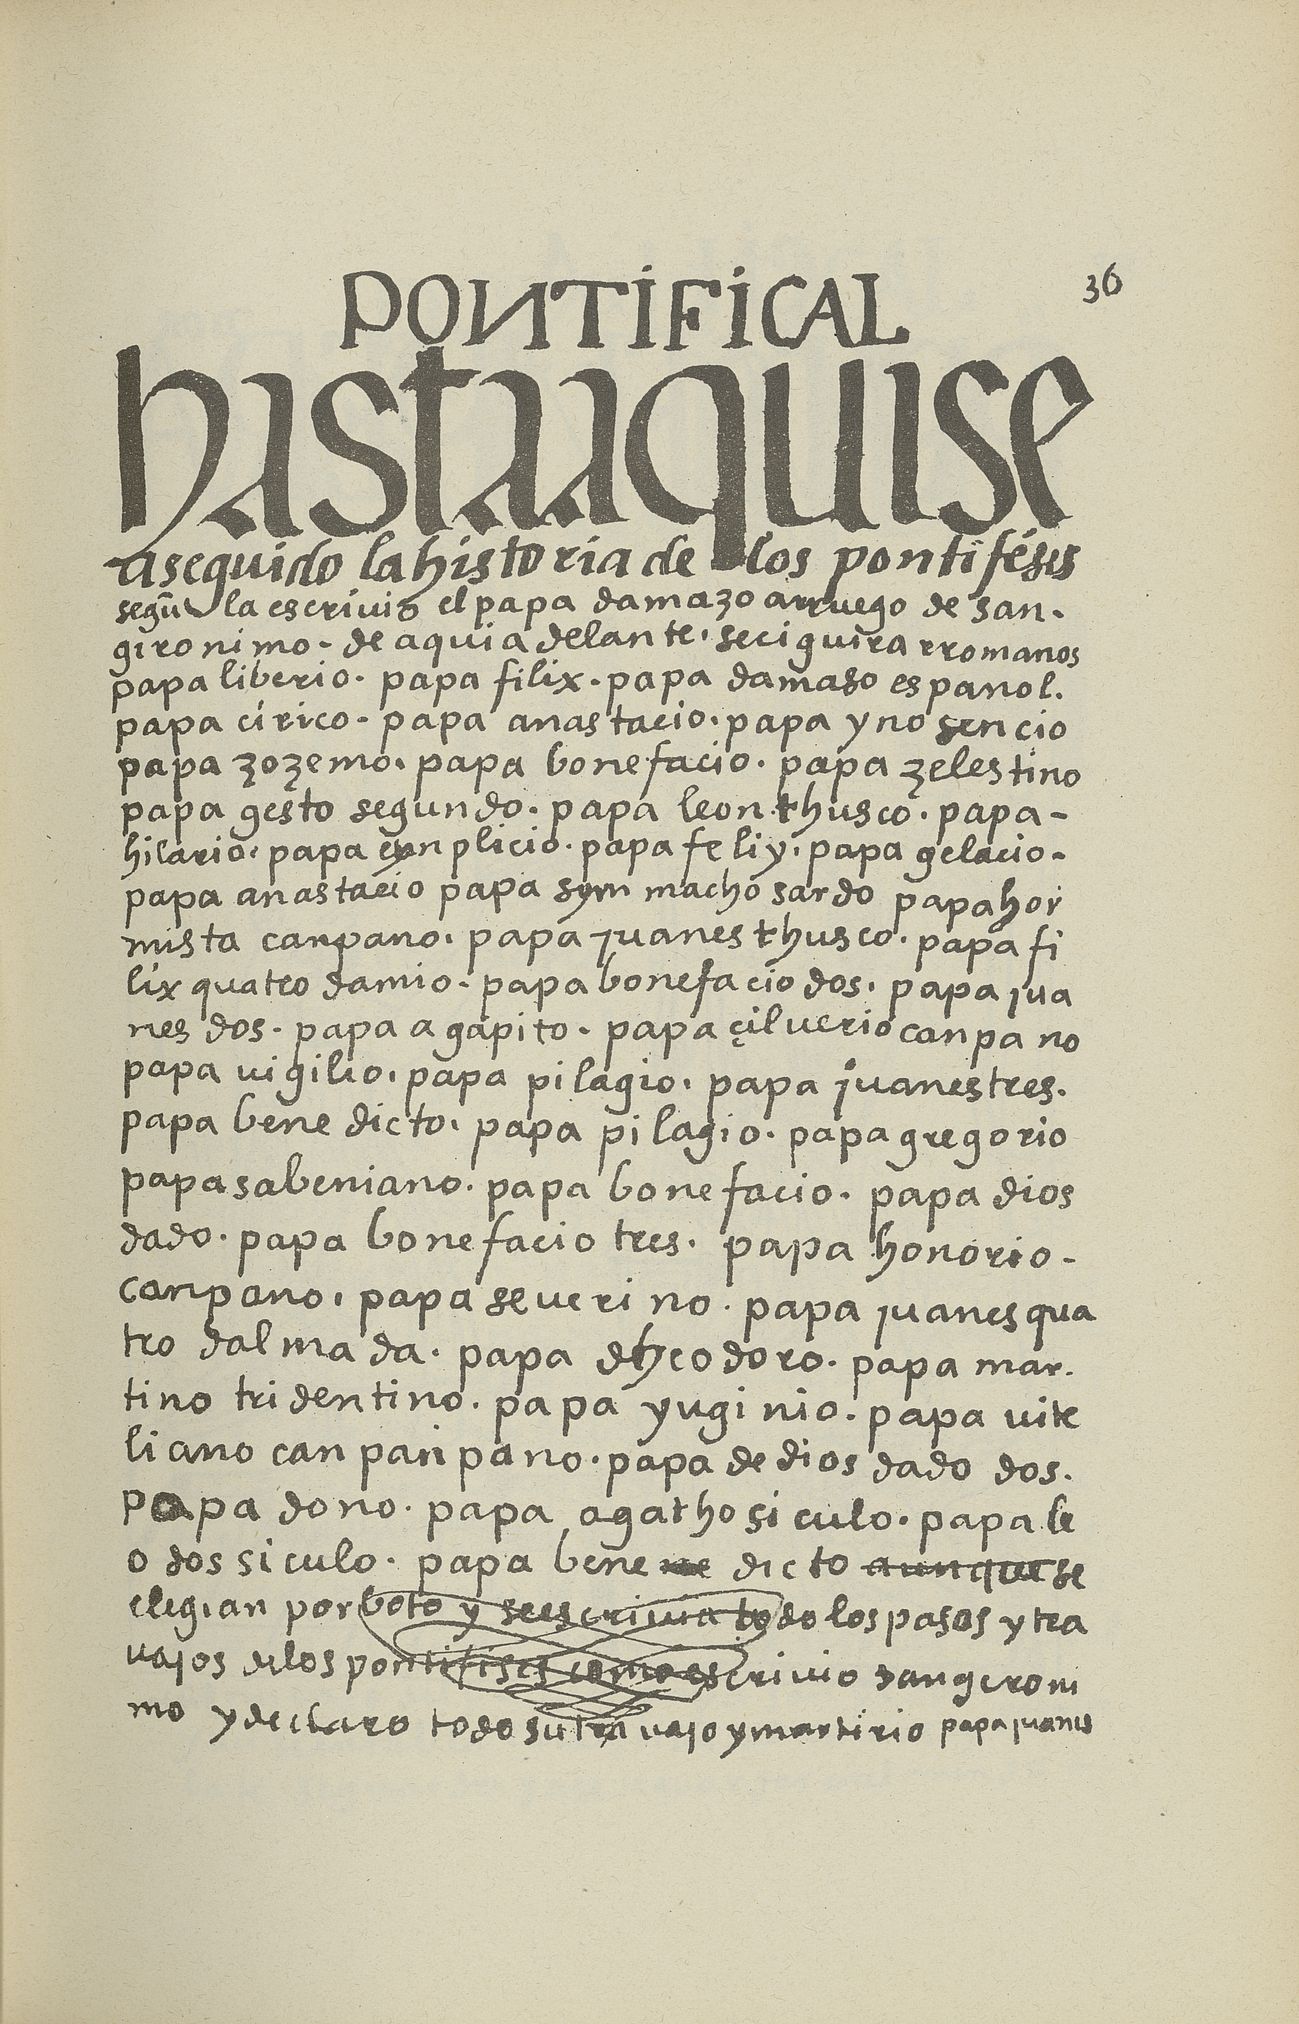 PONTIFICAL
36
hastaquise
aseguido la historia de los pontiféses
segũ la escrivio el papa damazo arruego de san.
gironimo. de aquia delante. seciguira rromanos
papa liberio. papa filix. papa damaso espanol.
papa cirico. papa anastacio. papa ynosencio
papa zozemo. papa bonefacio. papa zelestino
papa gesto segundo. papa leon thusco. papa-
hilario. papa cynplicio. papa feliy. papa gelacio.
papa anastacio papa symmacho sardo papa hor
mista canpano. papa juanes thusco. papa fi
lix quatro damio. papa bonefacio dos. papa jua
nes dos. papa agapito. papa çilverio canpano
papa vigilio. papa pilagio. papa juanes tres.
papa benedicto. papa pilagio. papa gregorio
papa sabeniano. papa bonefacio. papa dios
dado. papa bonefacio tres. papa honorio-
canpano. papa severino. papa juanes qua
tro dalmada. papa dhyeodoro. papa mar.
tino tridentino. papa yuginio. papa vite
liano canpanpano. papa de dios dado dos.
papa dono. papa agatho siculo. papa le
o dos siculo. papa bene dicto aunque se
elegian por boto y se escrivia todo los pasos y tra
vajos delos pontifises como escrivio sangeroni
mo y declaro todo su travajo y martirio papa juanes